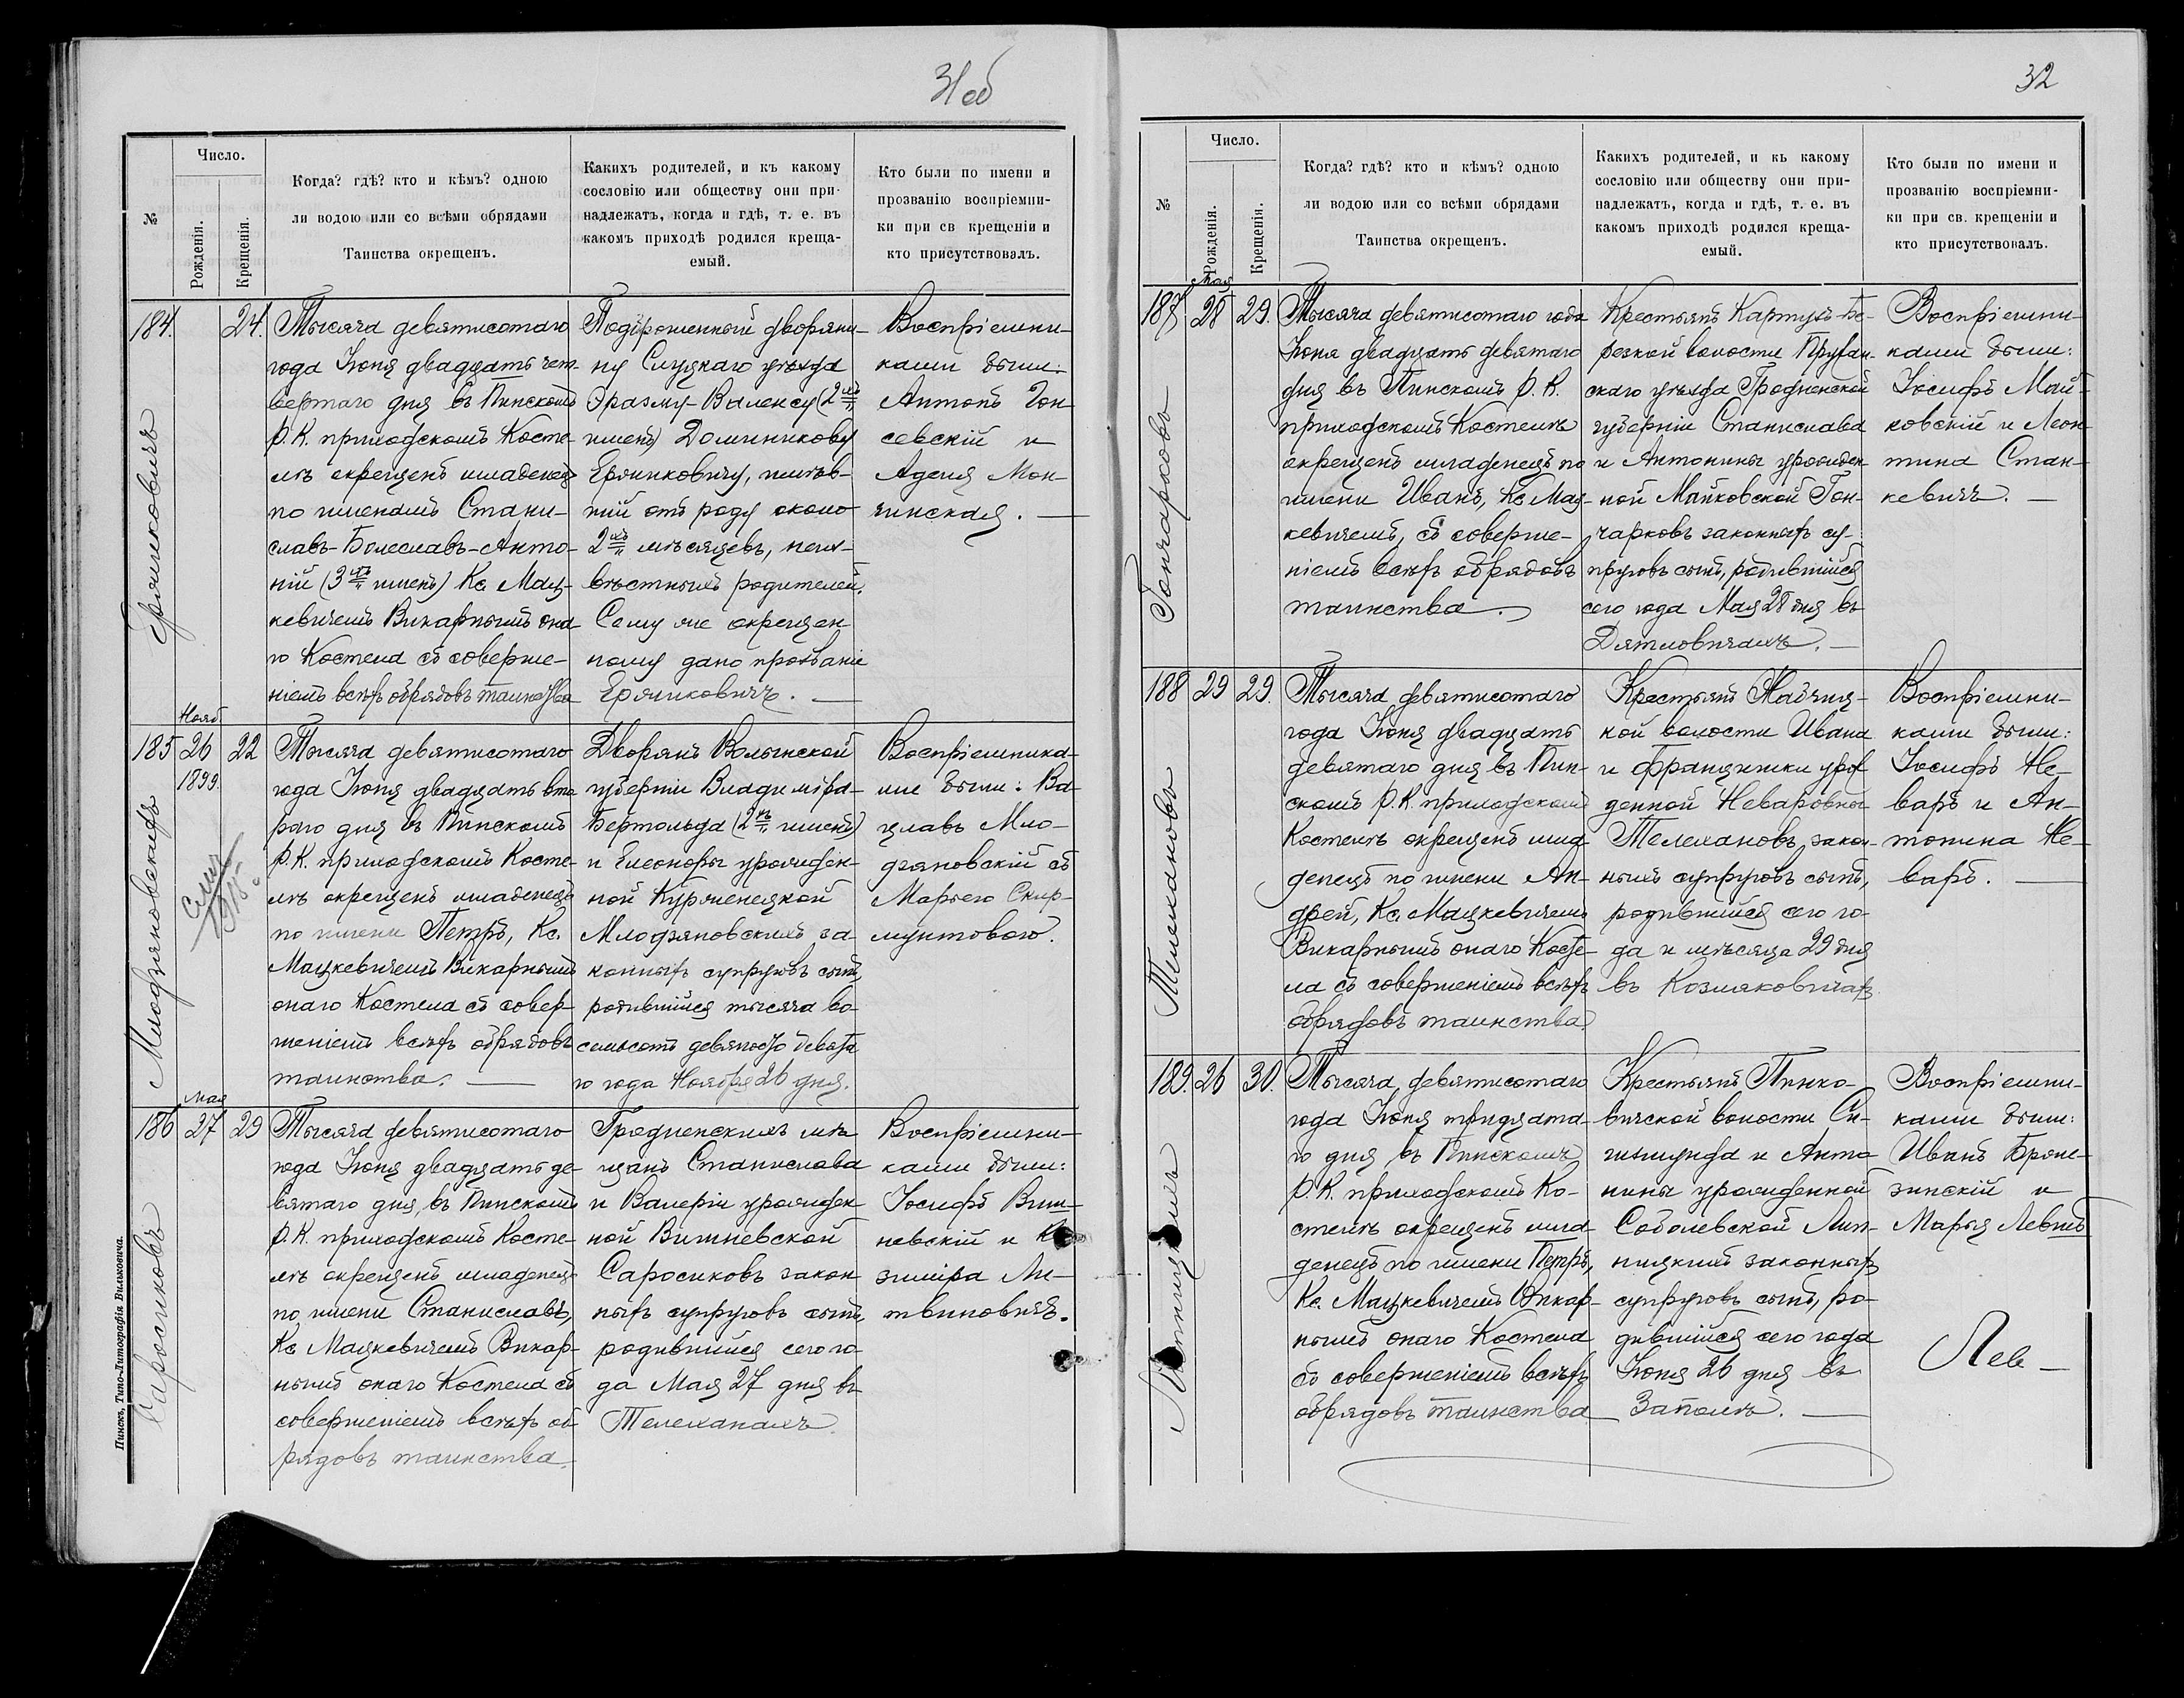 31 об
№
Число.
Рожденія.
Крещенія.
Когда? гдѣ? кто и кѣмъ? одною
ли водою или со всѣми обрядами
Таинства окрещенъ.
Какихъ родителей, и къ какому
сословію или обществу они при-
надлежатъ, когда и гдѣ, т. е. въ
какомъ приходѣ родился креща-
емый.
Кто были по имени и
прозванію воспріемни-
ки при св крещеніи и
кто присутствовалъ.
184.
24.
Тысяча девятисотаго
года Іюня двадцать чет-
вертаго дня въ Пинскомъ
Р. К. приходскомъ Косте-
лѣ окрещенъ младенецъ
по именамъ Стани-
славъ-Болеславъ-Анто-
ній (3хъ именъ) Кс. Мац-
кевичемъ Викарнымъ она
го Костела съ соверше-
ніемъ всѣхъ обрядовъ таинства
Подброшенный дворяни-
ну Слуцкаго уѣзда
Эразму-Валенсу (2хъ
именъ) Доминикову
Ерриковичу, имѣв-
шій отъ роду около
2хъ мѣсяцевъ, неиз-
вѣстныхъ родителей.
Сему же окрещен-
ному дано прозваніе
Воспріемни-
ками были:
Антонъ Гон-
севскій и
Аделя Мон-
чинская.
185
Нояб.
26
1899.
22
Млодзяновскаго
1915
Тысяча девятисотаго
года Іюня двадцать вто
рого дня въ Пинскомъ
Р. К. приходскомъ Косте-
лѣ окрещенъ младенецъ
по имени Петръ, Кс.
Мацкевичемъ Викарнымъ
онаго Костела съ совер-
шеніемъ всѣхъ обрядовъ
таинства.
Дворянъ Волынской
губерніи Владиміра-
Бертольда (2хъ именъ)
и Елеоноры урожден-
ной Курженецкой
Млодзяновскихъ за-
конныхъ супруговъ сынъ,
родившійся тысяча во-
семьсотъ девяносто девята
го года Ноября 26 дня.
Воспріемника-
ми были: Ва-
цлавъ Мло-
дзяновскій съ
Марьею Скир-
мунтовою.
186
Мая
27
29
Саросиковъ
Тысяча девятисотаго
года Іюня двадцать де-
вятаго дня, въ Пинскомъ
Р. К. приходскомъ Косте-
лѣ окрещенъ младенецъ
по имени Станиславъ,
Кс Мацкевичемъ Викар-
нымъ онаго Костела съ
совершеніемъ всѣхъ об-
рядовъ таинства.
Гродненскихъ мѣ-
щанъ Станислава
и Валеріи урожден
ной Вишневской
Саросиковъ закон
ныхъ супруговъ сынъ,
родившійся сего го-
да Мая 27 дня въ
Телеханахъ.
Воспріемни-
ками были:
Іосифъ Виш-
невскій и
зиміра Ли-
твиновичъ.
Пинскъ, Типо-Литографія Вильковича.
32
№
Число.
Рожденія.
Крещенія.
Когда? гдѣ? кто и кѣмъ? одною
ли водою или со всѣми обрядами
Таинства окрещенъ.
Какихъ родителей, и къ какому
сословію или обществу они при-
надлежатъ, когда и гдѣ, т. е. въ
какомъ приходѣ родился креща-
емый.
Кто были по имени и
прозванію воспріемни-
ки при св. крещеніи и
кто присутствовалъ.
187.
Мая
28
29.
Гончарковъ
Тысяча девятисотаго года
Іюня двадцать девятаго
дня въ Пинскомъ Р. К.
приходскомъ Костелѣ
окрещенъ младенецъ по
имени Иванъ, Кс Мац-
кевичемъ, съ соверше-
ніемъ всѣхъ обрядовъ
таинства.
Крестьянъ Картузъ-Бе-
резкой волости Пружан-
скаго уѣзда Гродненской
губерніи Станислава
и Антонины урожден-
ной Майковской Гон-
чарковъ законныхъ су-
пруговъ сынъ, родившійся
сего года Мая 28 дня въ
Дятловичахъ.
Воспріемни-
ками были:
Іосифъ Май-
ковскій и Леон-
тина Стан-
кевичъ.
188
29
29.
Телехановъ
Тысяча девятисотаго
года Іюня двадцать
девятаго дня въ Пин-
скомъ Р. К. приходскомъ
Костелѣ окрещенъ мла
денецъ по имени Ан-
дрей, Кс. Мацкевичемъ
Викарнымъ онаго Косте-
ла съ совершеніемъ всѣхъ
обрядовъ таинства
Крестьянъ
кой волости Ивана
и Францишки урож
денной Неваровны
Телехановъ, закон-
ныхъ супруговъ сынъ,
родившійся сего го-
да и мѣсяца 29 дня
въ Козляковичахъ.
Воспріемни-
ками были:
Іосифъ Не-
варъ и Ан-
тонина Не-
варъ.
189.
26
30.
Тысяча девятисотаго
года Іюня тридцата-
го дня, въ Пинскомъ
Р. К. приходскомъ Ко-
стелѣ окрещенъ мла
денецъ по имени Петръ,
Кс. Мацкевичемъ Викар-
нымъ онаго Костела
съ совершеніемъ всѣхъ
обрядовъ таинства
Крестьянъ Пинко-
вичской волости Си-
гизмунда и Анто-
нины урожденной
Соболевской Лип-
ницкихъ законныхъ
супруговъ сынъ, ро-
дившійся сего года
Іюня 26 дня въ
Заполѣ.
Воспріемни-
ками были:
Иванъ Броне-
зинскій и
Марья Левшъ
Лев